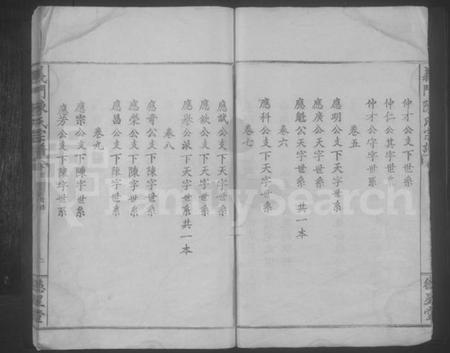 義門陳氏宗譜
仲才公支下世系
仲仁公其字世系
仲才公守字世系
卷五
應明公支下天字世系
應廣公天字世系
應魁公天字世系 共一本
卷六
應科公支下天字世系
卷七
應試公支下天字世系
應欽公支下天字世系
應舉公派下天字世系共一本
卷八
應奇公支下陳字世系
應榮公支下陳字世系
應昌公支下陳字世系
卷九
應宗公支下陳字世系
應芳公支下陳字世系
德星堂
FamilySearch